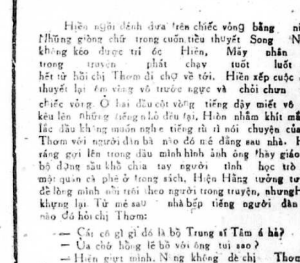 Hiền ngồi đánh đưa trên chiếc võng bằng ni
Những giòng chữ trong cuốn tiểu thuyết Song N
không kéo được trí óc Hiền, Mấy nhân
trong truyện phất chạy tuốt luốt
hết từ hồi chị Thơm đi chợ về tới. Hiền xếp cuộc
thuyết lại êm vòng võ trước ngực và chỏi chưn
chiếc võng Ở hai đầu cột vòng tiếng dậy miết vô
kêu lên những tiếng nhỏ đều lại, Hiền nhắm khít mắ
lắc đầu không muốn nghe tiếng rù rì nói chuyện của
Thơm với người đàn bà nào đó mé đằng sau nhà. H
ráng gợi lên trong đầu mình hình ảnh ông thày giáo
bộ dụng sầu khổ chia tay người tình học trò
một quán cà phê ở trong sách, Hiện Hằng tưởng tư
để lòng mình nôi trôi theo người trong truyện, nhưng
khựng lại. Từ mé sau nhà bếp tiếng người đàn
nào đó hỏi chị Thơm:
— Cái cô gì gì đó là bộ Trung sĩ Tâm á hả?
— Ủa chớ hổng lẽ bồ với ông tui sao?
— Hiền giựt mình, Nàng không dè chị Thơm